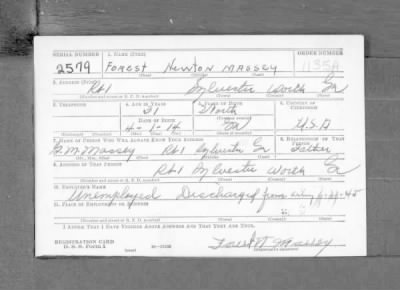 SERIAL NUMBER 1. NAME (Print) ORDER NUMBER
2579 FOREST NEWTON MASSEY 1135A
(First) (Middle) (Last)
2. ADDRESS (Print)
Rt 1 Sylvester Worth Ga
(Number and street or R. F. D. number) (Town) (County) (State)
3. TELEPHONE 4. AGE IN YEARS 5. PLACE OF BIRTH 6. COUNTRY OF CITIZENSHIP
Worth
DATE OF BIRTH
4-1-14 Ga U.S.A
7. NAME OF PERSON WHO WILL ALWAYS KNOW YOUR ADDRESS 8. RELATIONSHIP OF THAT PERSON
M. Massey Rt 1 Sylvester Ga Father
(Mr., Mrs., Miss) (First) (Middle) (Last)
9. ADDRESS OF THAT PERSON
Rt 1 Sylvester Worth Ga
(Number and street or R. F. D. number) (Town) (County) (State)
10. EMPLOYER'S NAME
Unemployed Discharged from
11. PLACE OF EMPLOYMENT OR BUSINESS
(Number and street or R. F. D. number) (Town) (County) (State)
I AFFIRM THAT I HAVE VERIFIED ABOVE ANSWERS AND THAT THEY ARE TRUE.
REGISTRATION CARD
D. S. S. Form 1 (over) Forest N. Massey
(Registrant's signature)